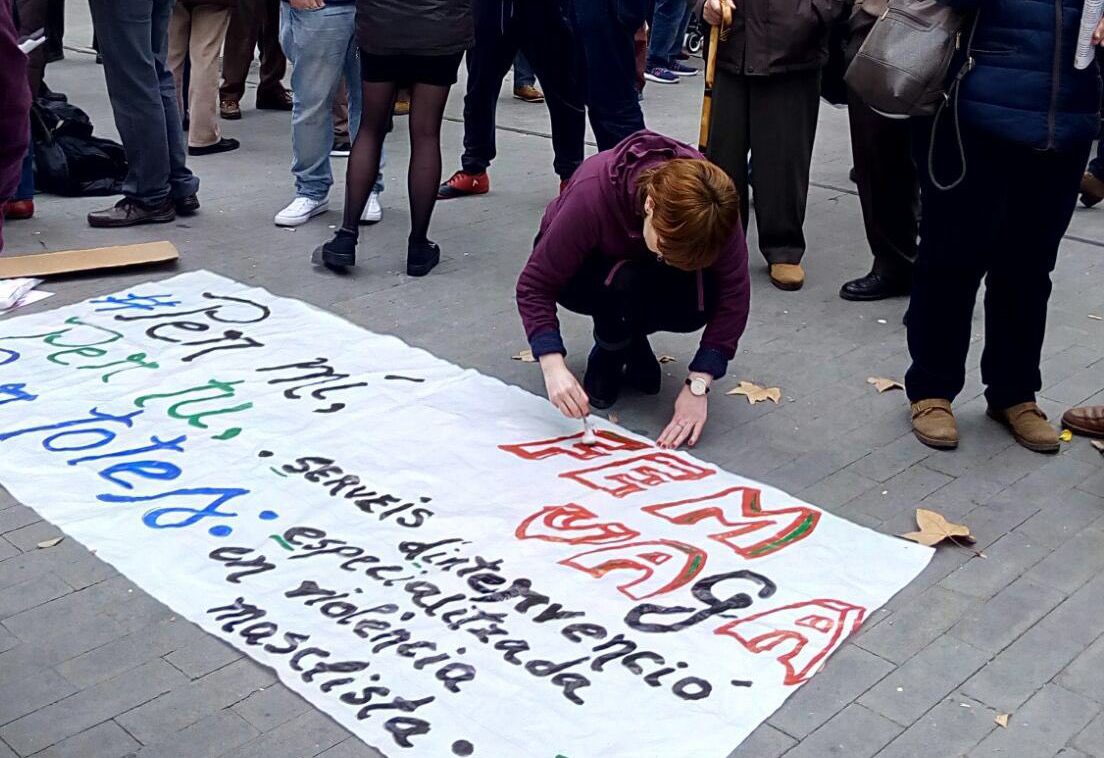 #Per mí,
Per tu,
Per totes.
FEM
VAGA
· SERVEIS d'intervenció
especialitzada
en violència
masclista.